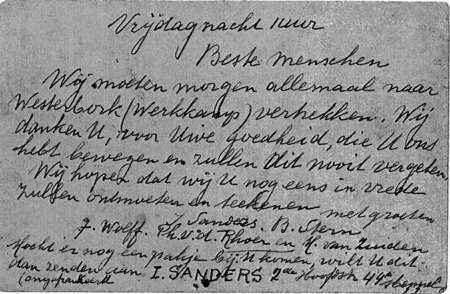 Vrijdagnacht 1 uur
Beste menschen
Wij moeten morgen allemaal naar
Westerbork (Werkkamp) vertrekken. Wij
danken U, voor Uwe goedheid, die U ons
hebt bewezen en zullen dit nooit vergeten.
Wij hopen dat wij U nog eens in vrede
zullen ontmoeten en teekenen met groeten
J. Wolff. I. Sanders. B. Stern.
Ph. v. d. Rhoer en K. van Zuiden
Mocht er nog een pakje bij U komen, wilt U dit
dan zenden aan I. SANDERS 2de Hoofdstr 44a Meppel
(ongefrankeerd